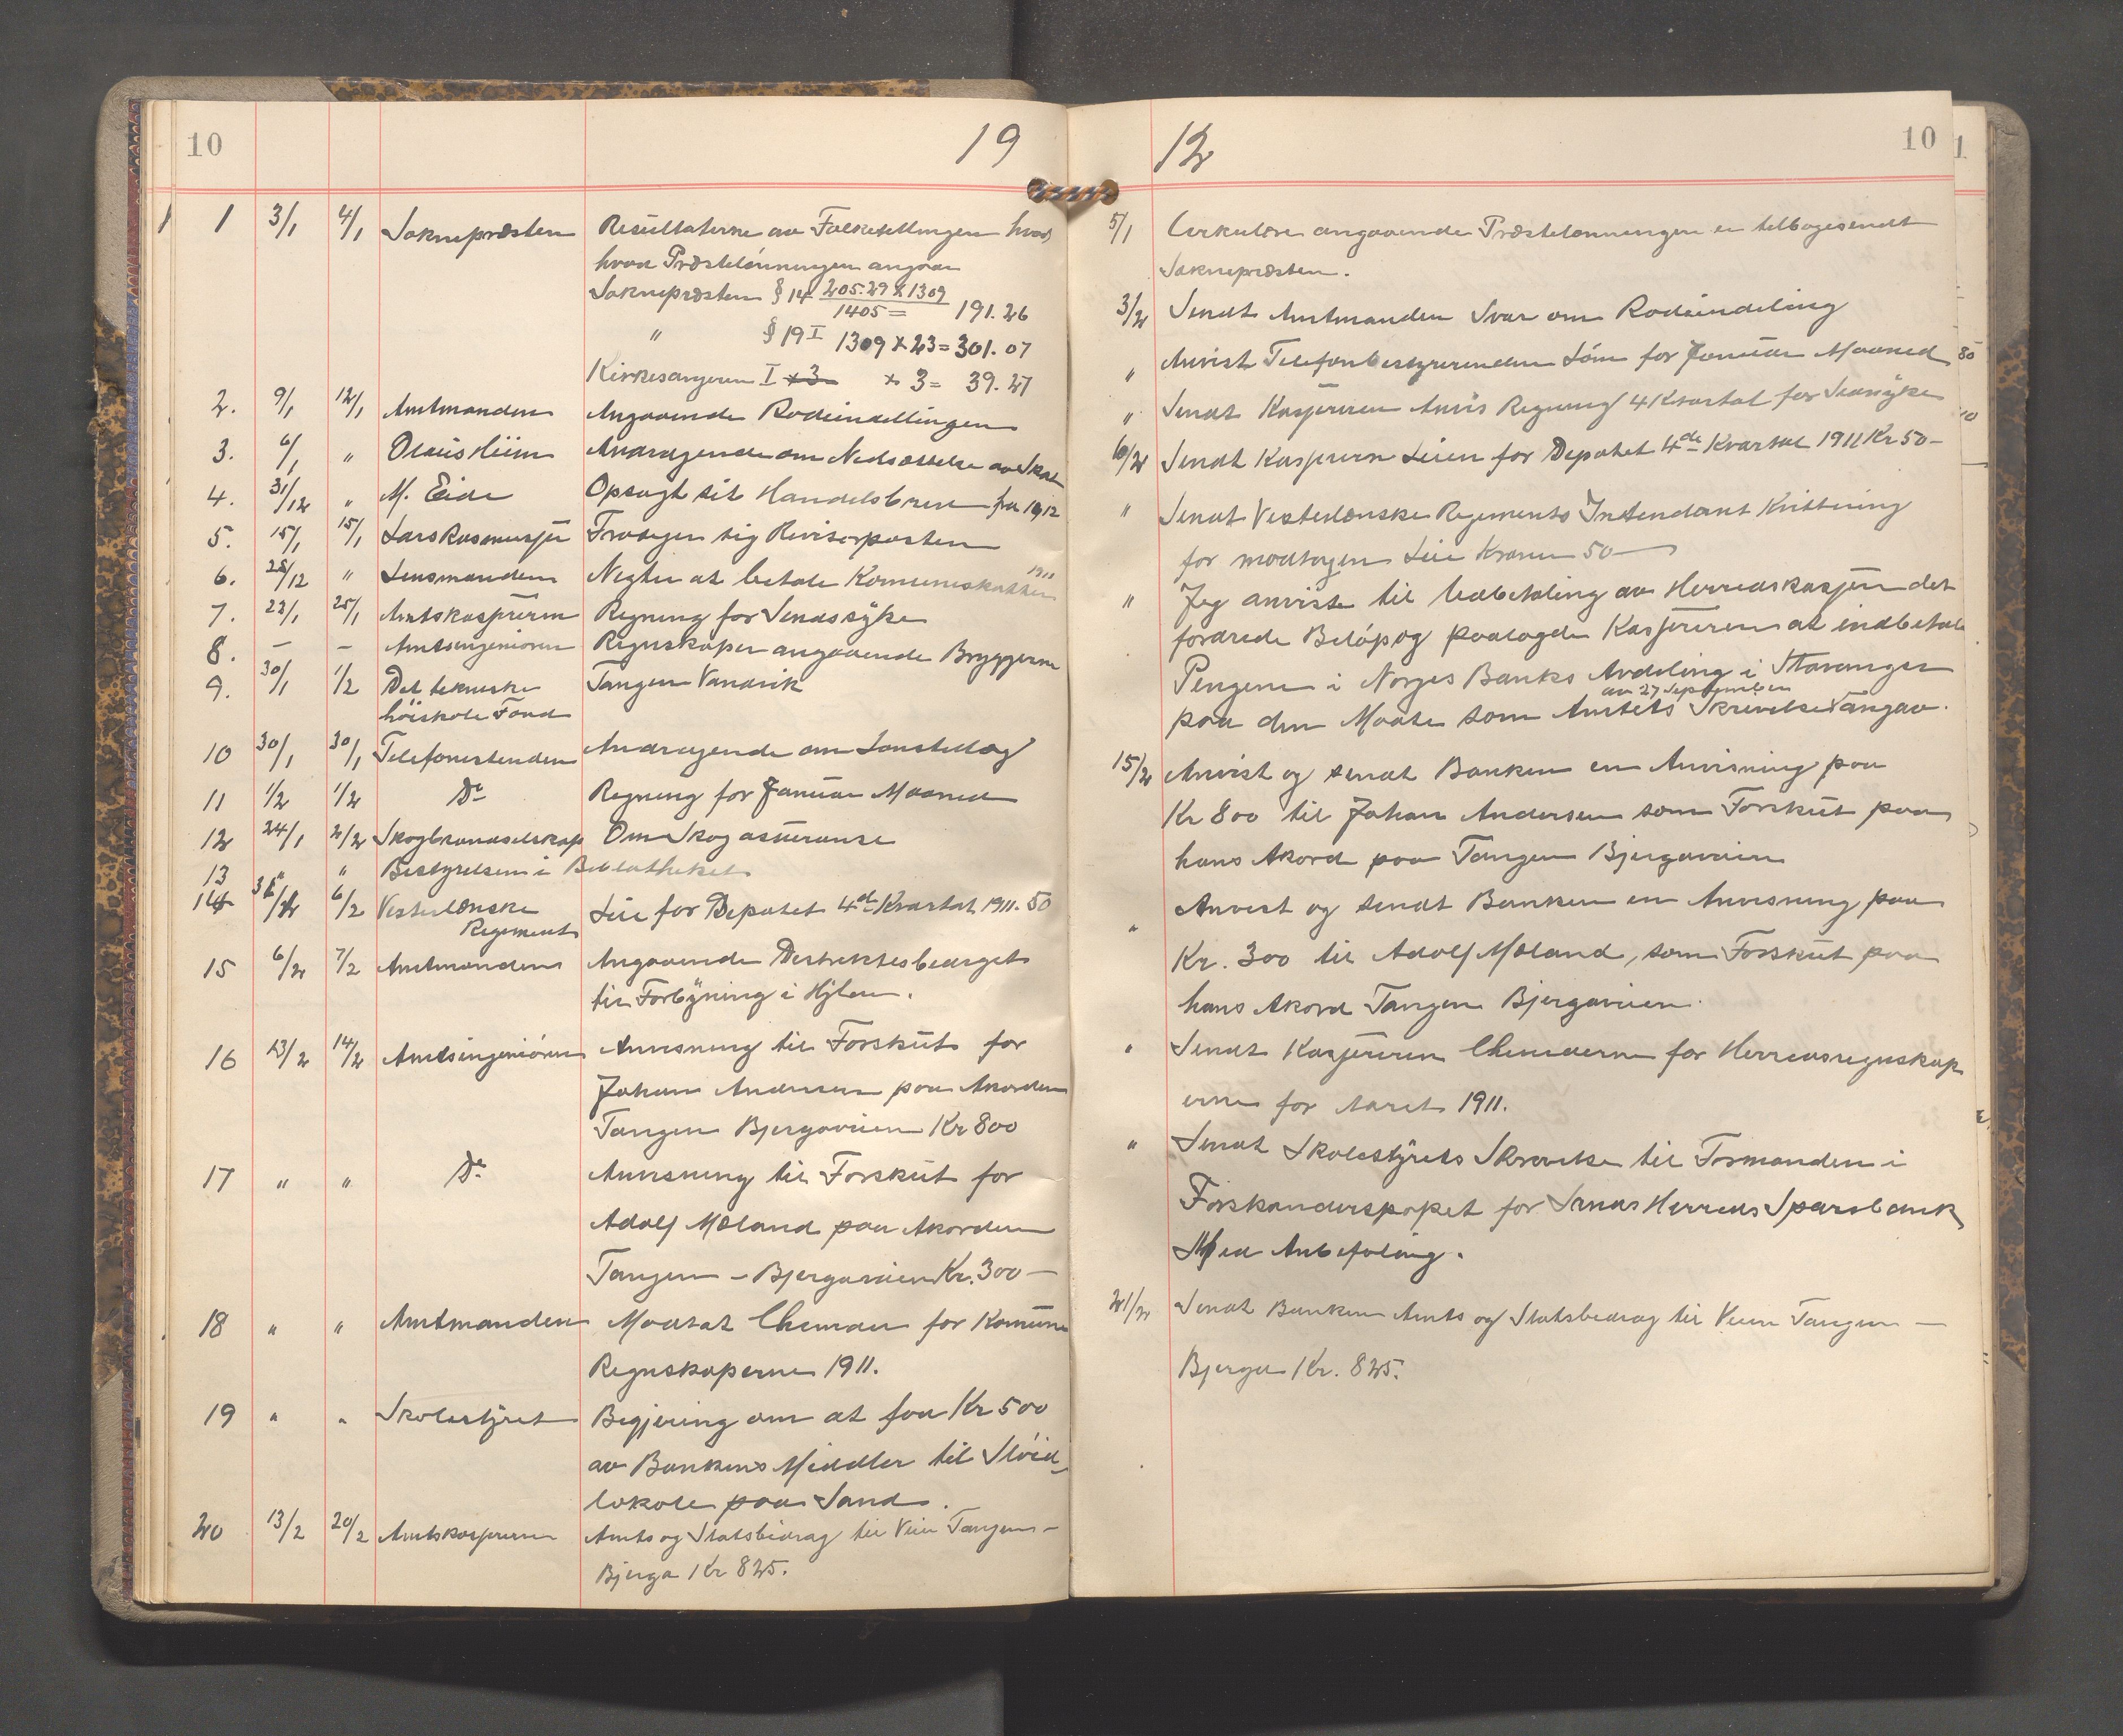 10
19
1 3/1 4/1 Soknepræsten Resultaterne av Folketellingen hvad
hvad Præstelønningen angaar
Soknepræsten § 14 205.29 x 1309
1405 = 191.26
" § 19 I 1309 x 23 = 301.07
Kirkesangeren I x 3 x 3 = 39.27
2. 9/1 12/1 Amtmanden Angaaende Rodeindellingen
3. 6/1 " Olaus Hiim Andragende om Nedsættelse av Skat
4. 31/12 " M. Eide Opsagt sit Handelsbrev fra 1912
5. 15/1 15/1 Lars Rasmussen Frasiger sig Revisorposten
6. 28/12 " Lensmanden Negter at betale Komuneskatten 1911
7. 22/1 25/1 Amtskasjereren Regning for Sindssyke
8. – – Amtsingeniøren Regnskaper angaaende Bryggerne
9. 30/1 1/2 Det tekniske Tangen Vandvik
høiskole Fond
10 30/1 30/1 Telefonistinden Andragende om Lønstillæg
11 1/2 1/2 Do Regning for Januar Maaned
12 24/1 2/2 Skogbrandselskap Om Skogassuranse
13 " " Bestyrelsen i Bibliotheket
14 31/12 6/2 Vesterlenske Leie for Depotet 4de Kvartal 1911. 50
Regiment
15 6/2 7/2 Amtmanden Angaaende Destriktsbidraget
til Forbygning i Hylen.
16 13/2 14/2 Amtsingeniøren Anvisning til Forskut for
Johan Andersen paa Akorden
Tangen Bjergaveien Kr 800
17 " " Do Anvisning til Forskut for
Adolf Mæland paa Akorden
Tangen – Bjergaveien Kr. 300 –
18 " " Amtmanden Modtat Chemaer for Komune
Regnskaperne 1911.
19 " " Skolestyret Begjæring om at faa Kr 500
av Bankens Middler til Sløid-
lokale paa Sand.
20 13/2 20/2 Amtskasjereren Amts og Statsbidrag til Veien Tangen –
Bjerga Kr 825.
12
10
5/1 Cirkulære angaaende Præstelønningen er tilbagesendt
Soknepræsten.
3/2 Sendt Amtmanden Svar om Rodeindeling
" Anvist Telefonbestyrerinden Løn for Januar Maaned
" Sendt Kasjereren Anvis Regning 4 Kvartal for Sindsyke
6/2 Sendt Kasjereren Leien for Depotet 4de Kvartal 1911 Kr 50 –
" Sendt Vesterlenske Regiments Intendant Kvittering
for modtagen Leie Kroner 50 –
" Jeg anviste til Utbetaling av Herredskassen det
fordrede Beløp og paalagde Kasjereren at indbetale
Pengene i Norges Banks Avdeling i Stavanger
av 27 September
paa den Maate som Amtets Skrivelse angav.
15/2 Anvist og sendt Banken en Anvisning paa
Kr 800 til Johan Andersen som Forskut paa
hans Akord paa Tangen Bjergaveien
" Anvist og sendt Banken en Anvisning paa
Kr. 300 til Adolf Mæland, som Forskut paa
hans Akord Tangen Bjergaveien.
" Sendt Kasjereren Chemaerne for Herredsregnskap
erne for Aaret 1911.
" Sendt Skolestyrets Skrivelse til Formanden i
Forstanderskapet for Sands Herreds Sparebank
Med Anbefaling.
21/2 Sendt Banken Amts og Statsbidrag til Veien Tangen –
Bjerga Kr. 825.